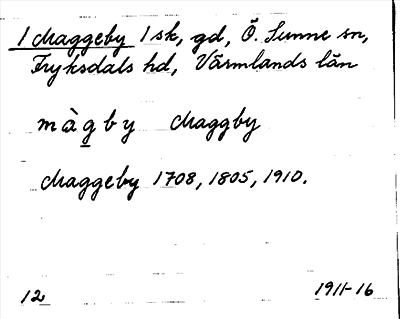 1 Maggeby 1 sk, gd, Ö. Sunne sn,
Fryksdals hd, Värmlands län
màgby Maggby
Maggeby 1708, 1805, 1910.
12 1911-16